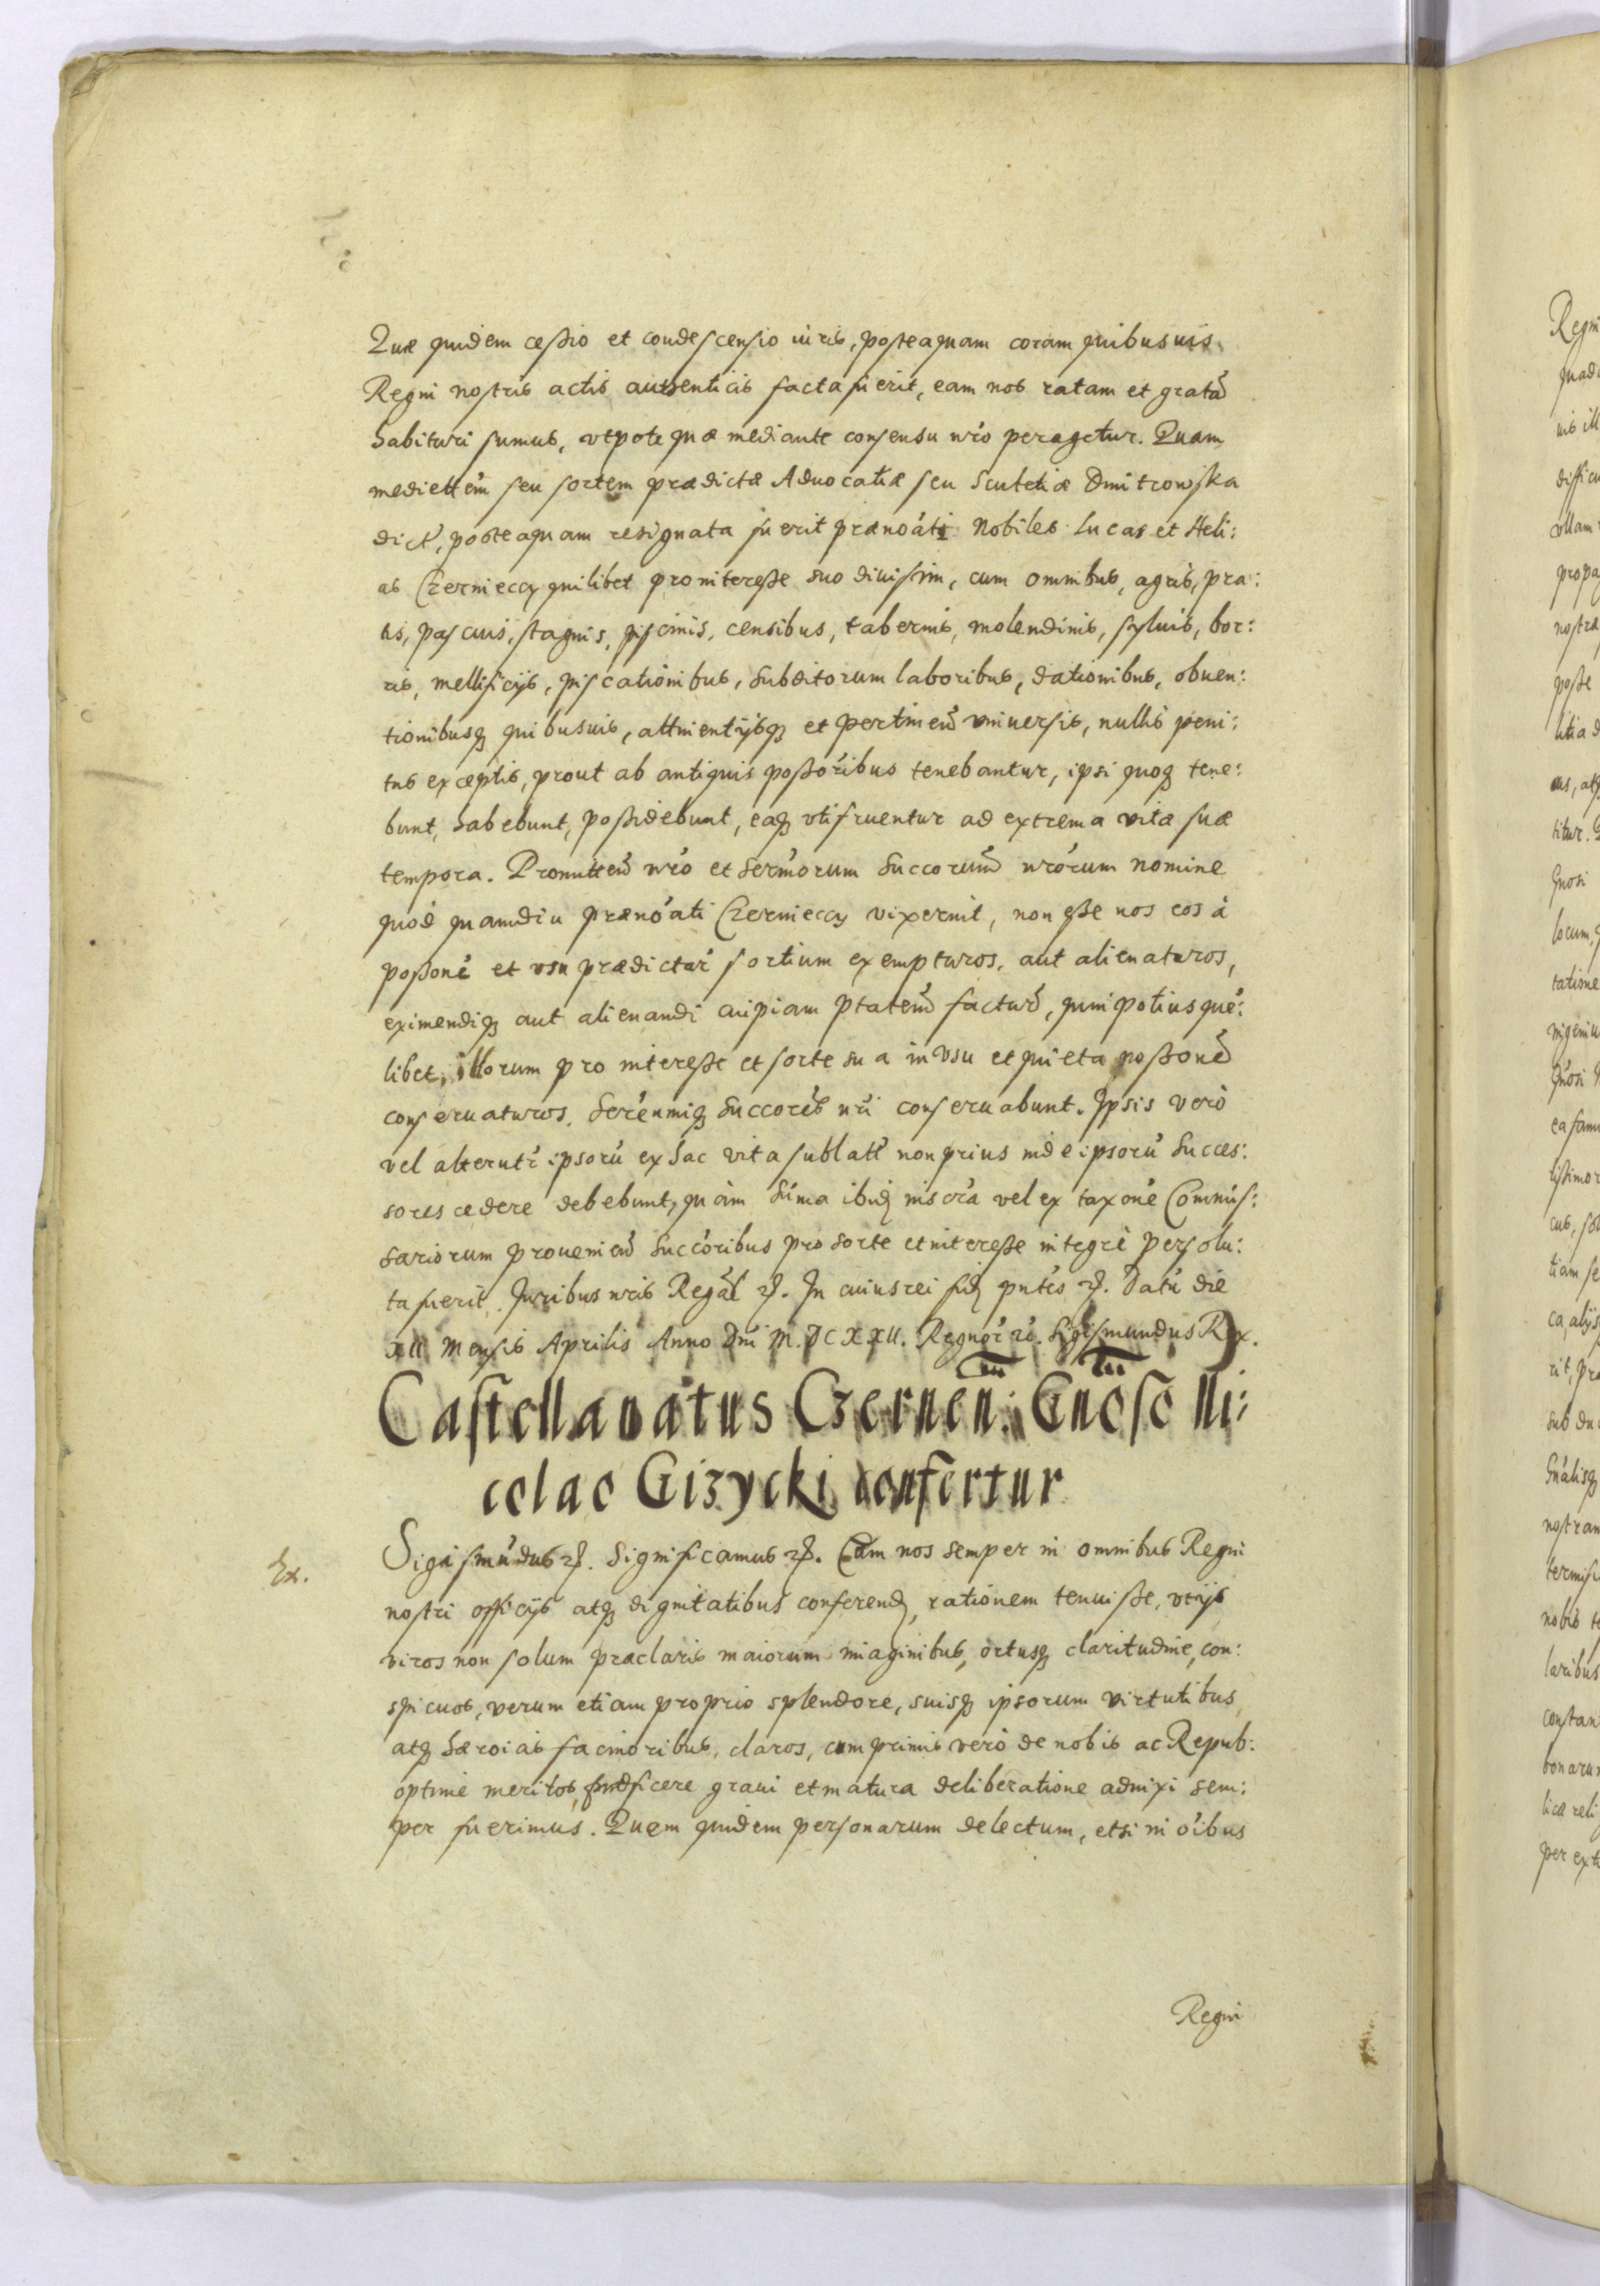 Quæ quidem cessio et condescensio iuris, posteaquam coram quibusuis
Regni nostris actis autenticis facta fuerit, eam nos ratam et gratã
habituri sumus, vtpote quæ mediante consensu nrõ peragetur. Quam
mediettẽm seu sortem prædictæ Aduocatiæ seu Scultetiæ Dmitrowska
dict, posteaquam resignata fuerit prænoãti Nobiles Lucas et Heli:
as Czernieccy quilibet pro interesse suo diuisim, cum omnibus, agris, pra:
tis, pascuis, stagnis, piscinis, censibus, tabernis, molendinis, syluis, bor:
ris, mellificijs, piscationibus, subditorum laboribus, dationibus, obuen:
tionibusq quibusuis, attinentijsq et pertineñ vniuersis, nullis peni:
tus exceptis, prout ab antiquis possoribus tenebantur, ipsi quoq tene:
bunt, habebunt, possidebunt, eaq vtifruentur ad extrema vitæ suæ
tempora. Promitteñ nrõ et Sermorum Succorum nrõrum nomine
quod quamdiu prænoãti Czernieccy vixerint, non esse nos eos à
possone et vsu prædictar sortium exempturos, aut alienaturos,
eximendiq aut alienandi cuipiam ptatem factur, quin potius que:
libet, illorum pro interesse et sorte sua in vsu et quieta possone
conseruaturos, Serenmiq Succores nri conseruabunt. Ipsis verò
vel alterutr ipsorũ ex hac vita sublat non prius inde ipsorũ Succes:
sores cedere debebunt, quàm sũma ibid inscra vel ex taxone Commis:
sariorum proueñien succoribus pro sorte et interesse integrè persolu:
ta fuerit. Juribus nris Regal. In cuius rei fid pntes. Datũ die
XII Mensis Aprilis Anno Dni M.DCXXII. Regnor. Sigismundus Rex.
Castellanatus Czernen: Gnoso Ni:
colao Gizycki confertur
Ex.
Sigismũdus. Significamus. Cum nos semper in omnibus Regni
nostri officijs atq dignitatibus conferend, rationem tenuisse, vt ijs
viros non solum præclaris maiorum imaginibus, ortusq claritudine, con:
spicuos, verum etiam proprio splendore, suisq ipsorum virtutibus
atq hæroicis facinoribus, claros, cum primis verò de nobis ac Repub:
optime meritos, præficere graui et matura deliberatione adnixi sem:
per fuerimus. Quem quidem personarum delectum, etsi in oibus
Regni